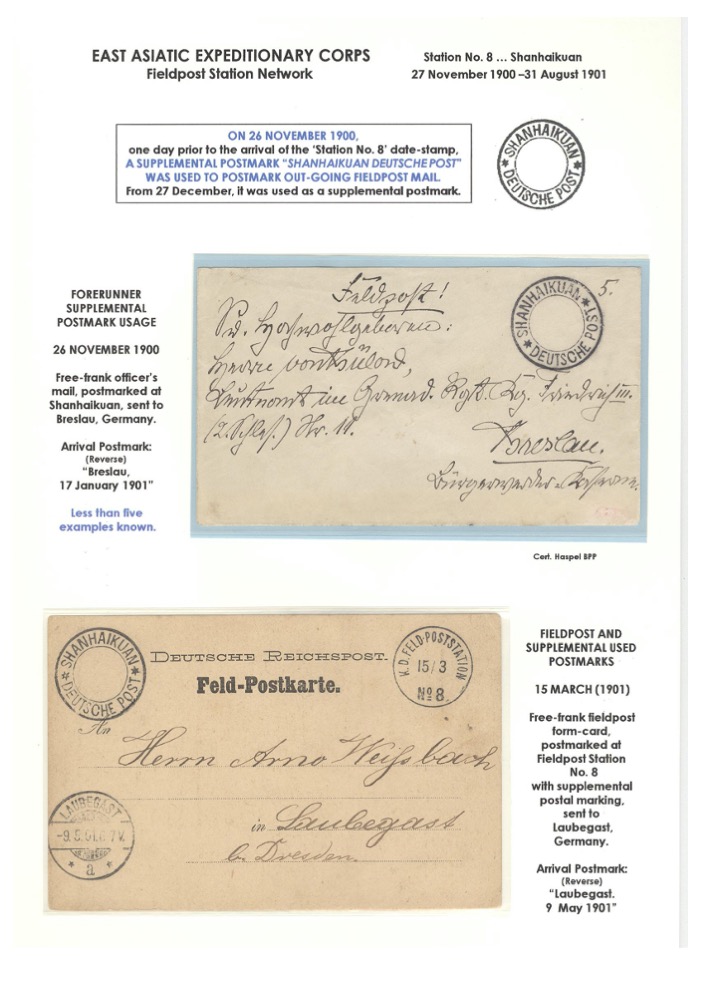 EAST ASIATIC EXPEDITIONARY CORPS
Fieldpost Station Network
Station No. 8 ... Shanhaikuan
27 November 1900 –31 August 1901
ON 26 NOVEMBER 1900,
one day prior to the arrival of the 'Station No. 8' date-stamp,
A SUPPLEMENTAL POSTMARK "SHANHAIKUAN DEUTSCHE POST"
WAS USED TO POSTMARK OUT-GOING FIELDPOST MAIL.
From 27 December, it was used as a supplemental postmark.
SHANHAIKUAN
DEUTSCHE POST
FORERUNNER
SUPPLEMENTAL
POSTMARK USAGE
26 NOVEMBER 1900
Free-frank officer's
mail, postmarked at
Shanhaikuan, sent to
Breslau, Germany.
Arrival Postmark:
(Reverse)
"Breslau,
17 January 1901"
Less than five
examples known.
Feldpost!
5.
SHANHAIKUAN
DEUTSCHE POST
Sr. Hochwohlgeboren:
Herrn von
Leutnant im Grenad. Rgt. Kg. Friedrich III.
(2. Schles.) Nr. 11.
Breslau.
Bürgerwerder-Kaserne.
Cert. Haspel BPP
SHANHAIKUAN
DEUTSCHE POST
DEUTSCHE REICHSPOST.
Feld-Postkarte.
K.D. FELD-POSTSTATION
15/3
No 8
An
Herrn Arno Weissbach
in Laubegast
b. Dresden.
LAUBEGAST
-9.5.01.6.7V.
* a *
FIELDPOST AND
SUPPLEMENTAL USED
POSTMARKS
15 MARCH (1901)
Free-frank fieldpost
form-card,
postmarked at
Fieldpost Station
No. 8
with supplemental
postal marking,
sent to
Laubegast,
Germany.
Arrival Postmark:
(Reverse)
"Laubegast.
9 May 1901"